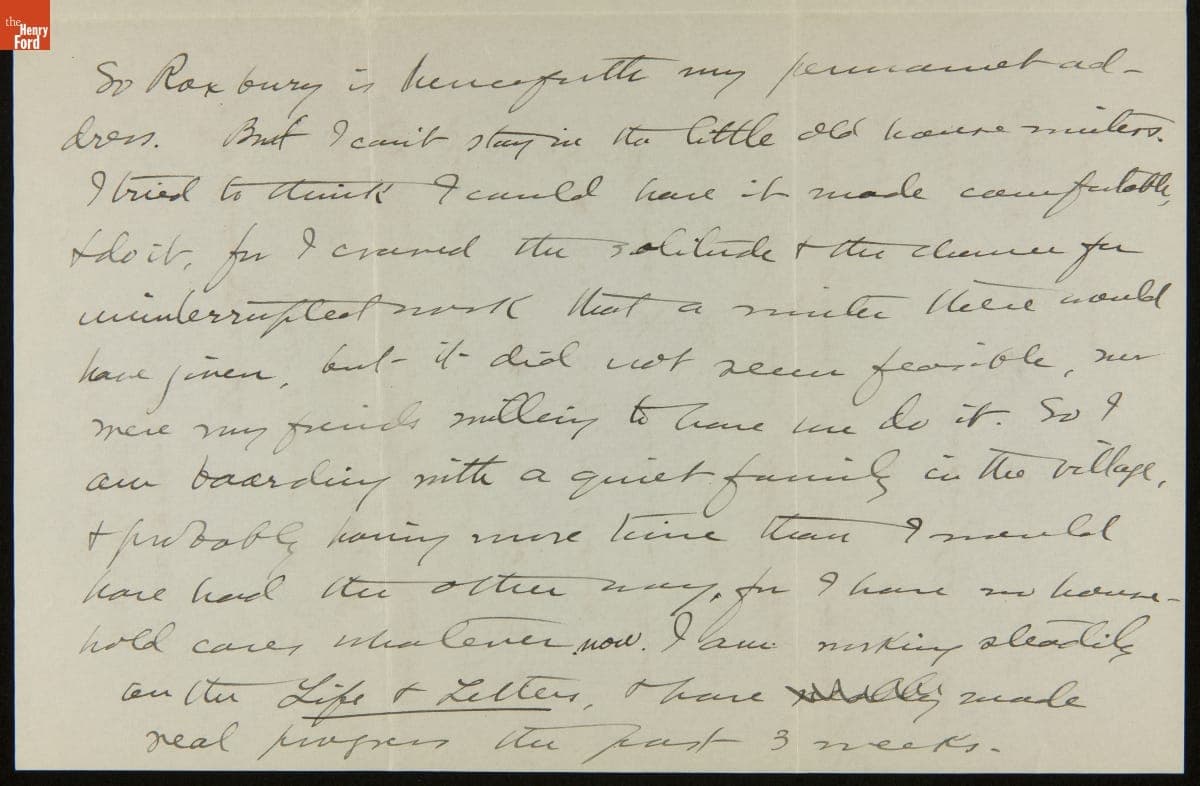 the
Henry
Ford
So Roxbury is henceforth my permanet ad-
dress. But I can't stay in the little old house winters.
I tried to think I could have it made comfortable,
& do it, for I craved the solitude & the chance for
uninterrupted work that a winter there would
have given, but it did not seem feasible, nor
were my friends willing to have me do it. So I
am boarding with a quiet family in the village,
& probably having more time than I would
have had the other way, for I have no house-
hold cares whatever now. I am working steadily
on the Life & Letters, & have really made
real progress the past 3 weeks.